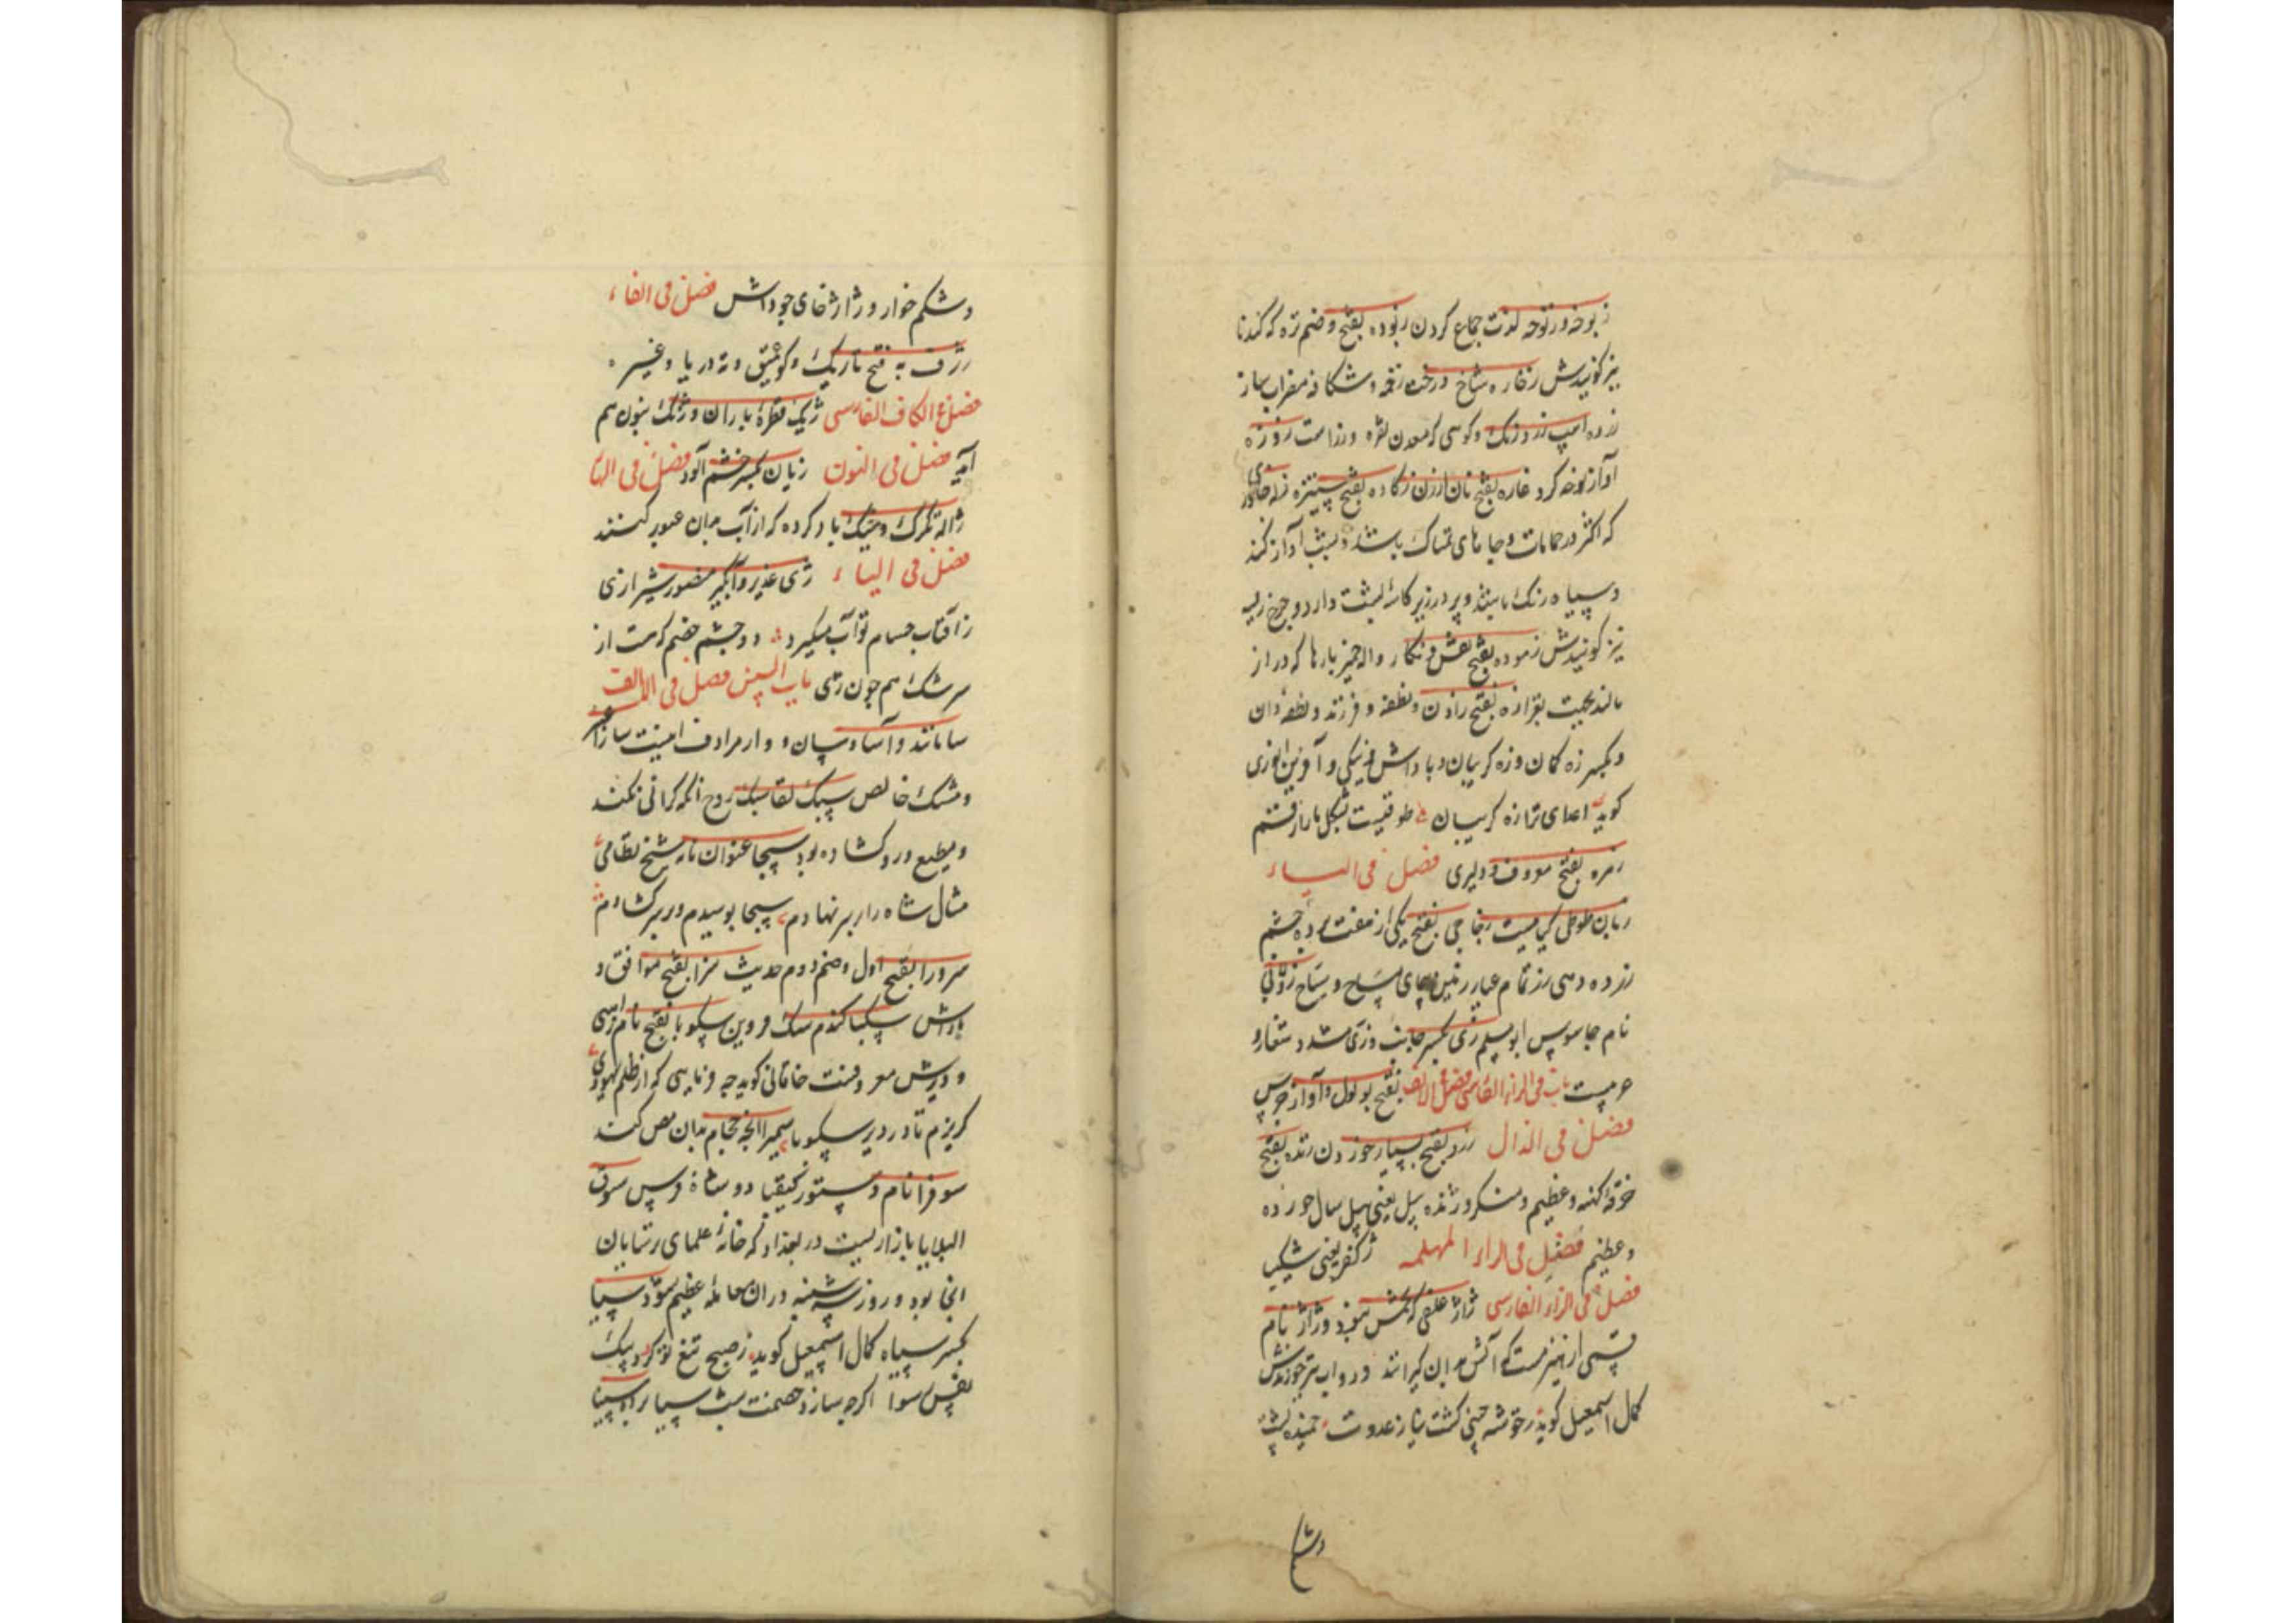 زبوخه و زنوحه لذت جماع کردن ربوده بفتح و ضم تره که کندنا
نیز کویندش زغاره شاخ درخت زخمه و شکافه مضراب ساز
زرده اسپ زرد رنک و کوهی که معدن نقره و رز است زوزه
آواز نوحه کرد غاره بفتح نان ارزن زکاده بفتح ستیزه زله جانوری
که اکثر در حمامات و جاهای نمناک باشد و بشب آواز کند
و سیاه رنک باشد و پر در زیر کاسهٔ پشت دارد و چرخ ریسه
نیز کویندش زموده بفتح نقش و نکار و اله چیز بارها که دراز
مانند بقزازه بفتح زادن و نطفه و فرزند و نطفه دان
و بکسر زه کمان و زه کریبان و پاداش نیکی و آفرین انوری
کوید اعدای ترا زه کریبان طوقیست بشکل مار ارقم
زهره بفتح معروف و دلیری فصل فی الیاء
زبان طوطی کیاهیست زجاجی بفتح یکی از هفت پردهٔ چشم
زر ده دهی زر تمام عیار زمین جای سنکلاخ زولابی
نام جاسوس ابومسلم زی بکسر جانب و زی مشدد شعار و
حرمت باب فی الزاء الفارسی فصل فی الالف بفتح بوبول و آواز جرس
فصل فی الدال ژرد بفتح بسیار خوردن ژنده بفتح
خرقهٔ کهنه و عظیم و منکر و ژنده پیل یعنی پیل سال خورده
و عظیم فصل فی الراء المهمله ژکفر یعنی شکیب
فصل فی الزاء الفارسی ژاژ علفی که کمش شود و ژاژ نام
قسمی از هیزمست که آتش بدان کیرانند و دواب نیز خورندش
کمال اسمعیل کوید ز خوشه چینی کشت نیاز عدوت خمیده پشت
و شکم
و شکم خوار و ژاژ خای چو داش فصل فی الفاء
ژرف به فتح تاریک و کو عمیق و ته دریا و غیره
فصل فی الکاف الفارسی ژیک قطرهٔ باران و ژنک بنون هم
آمده فصل فی النون ژیان بکسر خشم آلود فصل فی الهاء
ژاله تکرک و مشک باد کرده که از آب بدان عبور کنند
فصل فی الیاء ژی غدیر و آبکیر منصور شیرازی
ز آفتاب حسام تو آب میکیرد دو چشم خصم که هست از
سرشک هم چون ژی باب السین فصل فی الالف
سا مانند و آسا و سان و وار مرادف اینست سارا
و مشک خالص سبک لقا سبک روح انکه کرانی نکند
و مطبع و رو کشاده بود سیجا عنوان نامه شیخ نظامی
مثال شاه را بر سر نهادم سیجا بوسیدم و سر بر کشادم
سرورا بفتح اول و ضم دوم حدیث سزا بفتح موافق و
پاداش سکبا کندم سک و وین سکوبا بفتح نام راهبی
و دیرش معروفست خاقانی کوید چه فرمایی که از ظلم یهودی
کریزم تا در دیر سکوبا سمیرا انچه حجام بدان مص کند
سوفرا نام دستور کیقباد و شاهٔ فرس سوق
البلایا بازاریست در بغداد که خانهٔ علمای رشایان
انجا بود و روز سه شنبه در ان معامله عظیم شود سیا
بکسر سیاه کمال اسمعیل کوید ز صبح تیغ تو کرد یک
نفس سوا اکرچه سازد خصمت شب سیاه سینا